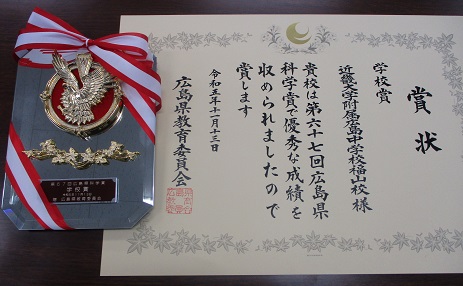 賞状
学校賞
近畿大学附属広島中学校福山校様
貴校は第六十七回広島県
科学賞で優秀な成績を
収められましたので
賞します
令和五年十一月十三日
広島県教育委員会
第67回広島県科学賞
学校賞